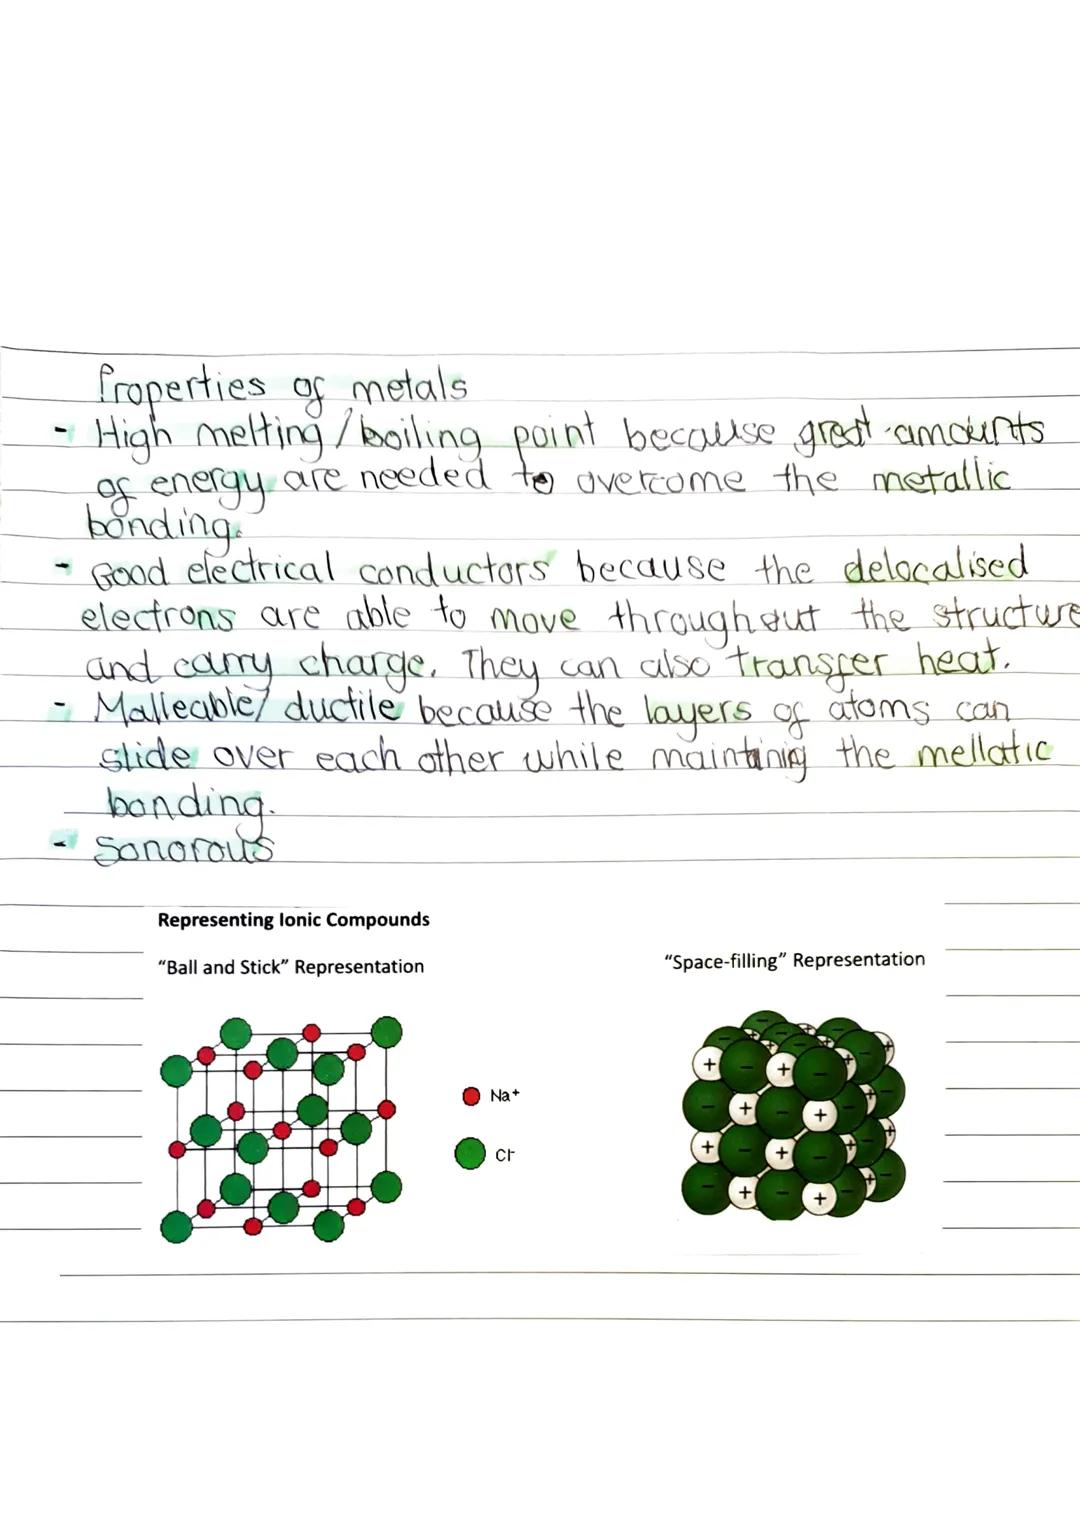 Properties of metals
- High melting/boiling point because great amounts
of energy are needed to overcome the metallic
bonding.
- Good electrical conductors because the delocalised
electrons are able to move throughout the structure
and carry charge. They can also transfer heat.
- Malleable/ ductile because the layers of atoms can
slide over each other while maintining the mellatic
bonding.
- Sonorous
Representing Ionic Compounds
"Ball and Stick" Representation
"Space-filling" Representation
Na+
Cl-